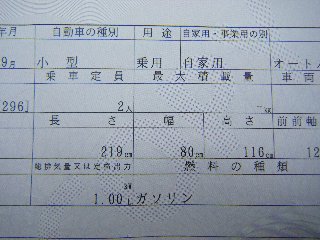 年月 自動車の種別 用途 自家用・事業用の別
9月 小型 乗用 自家用 オート
乗車定員 最大積載量 車両
296] 2人 kg
長さ 幅 高さ 前前軸
219cm 80cm 116cm 12
総排気量又は定格出力 燃料の種類
kW
1.00L ガソリン